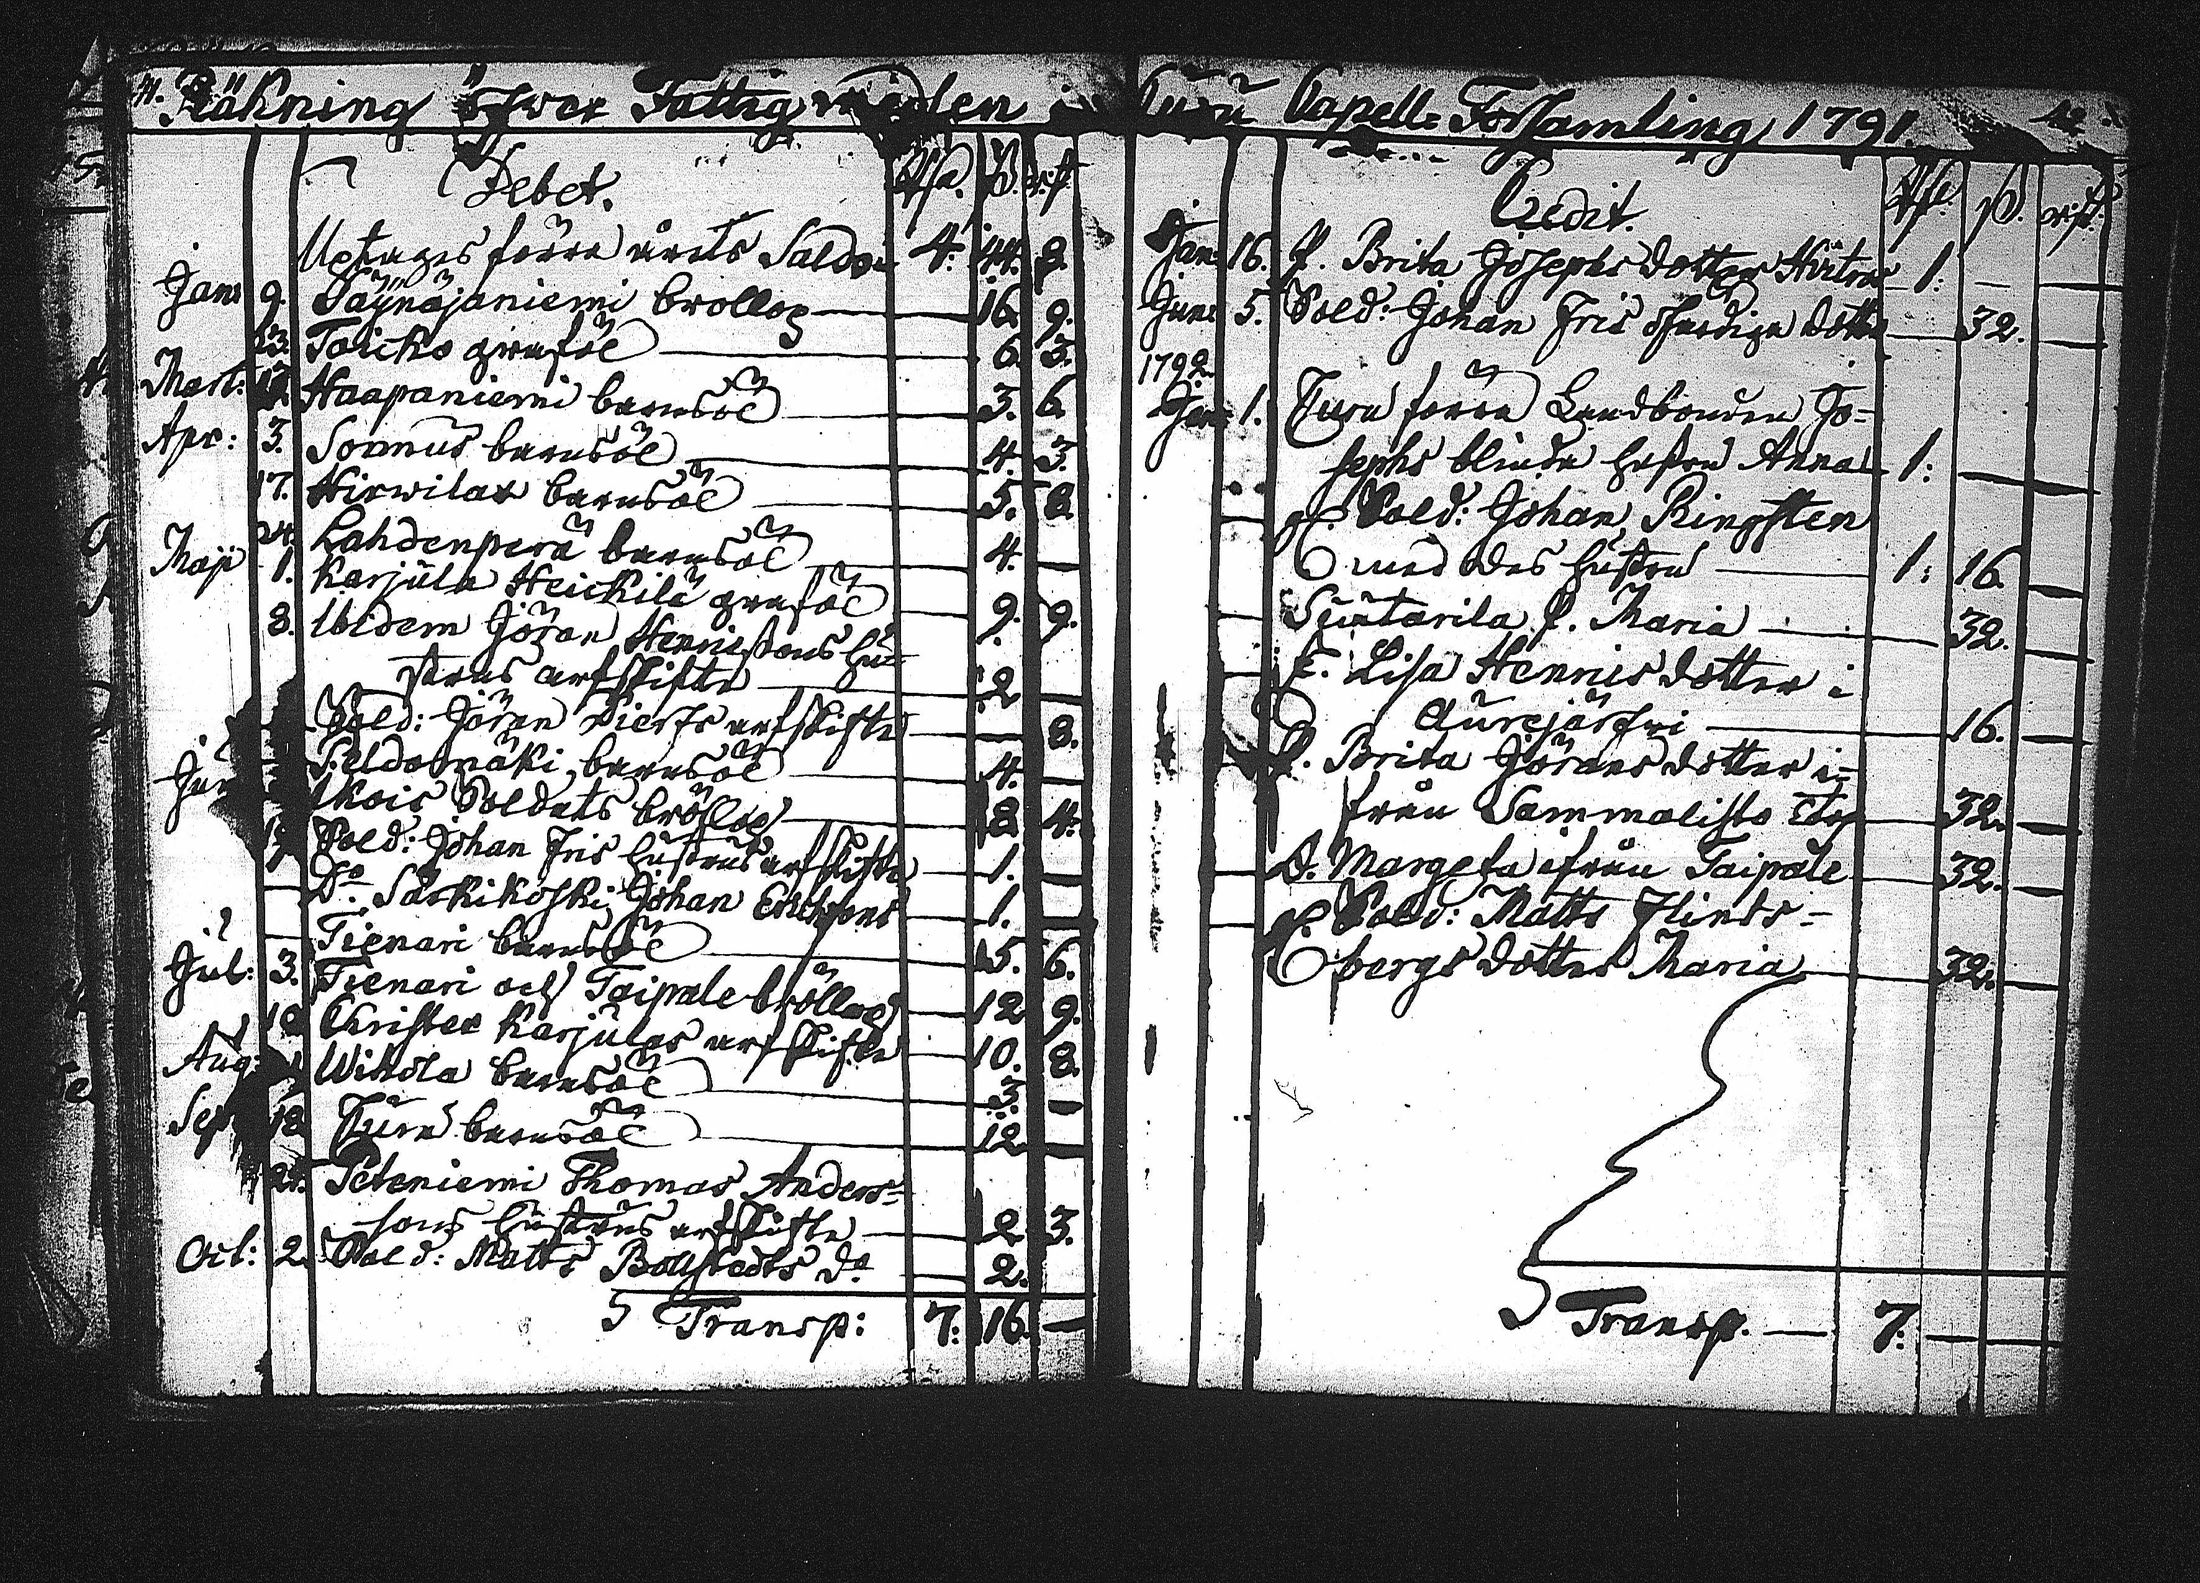 41. Räkning öfwer Fattig medlen i Kuru Capell= Församling 1791. 42.
Debet. Rsd. ß. rst.
Uptages förra årets Saldo 4. 44. 8.
Jan: 9. Päynäjaniemi bröllop 16. 9.
23. Toicko grafööl 6. 3.
Mart: Haapaniemi barnsööl 3. 6.
Apr: 3. Sormus barnsööl 4. 3.
17. Hirwilax barnsööl 5. 8.
24. Lahdenperä barnsööl 4. —
Maji 1. Karjula Heickilä grafööl 9. 9.
8. Ibidem Jöran Henricsons hu=
strus arfskifte 2. —
Sold: Jöran Pierts arfskifte — 8.
Jun Peldomäki barnsööl 4. —
Ikois Soldats bröllop 8. 4.
Sold: Johan Fris hustrus arfskifte 1. —
Do Särkikoski Johan Ericksons 1. —
Tienari barnsööl 5. 6.
Jul: 3. Tienari och Taipale bröllop 12. 9.
10. Christer Karjulas arfskifte 10. 8.
Aug: Wikola barnsööl 3. —
Sep 18. Kuru barnsööl 12. —
Peteniemi Thomas Anders=
sons hustrus arfskifte 2. 3.
Oct: 2. Sold: Matts Bollstedts do 2.
Transp: 7. 16. —
Credit. Rsd. ß. rst.
Jan: 16. E. Brita Josephs dotter 1. — —
Jun: 5. Sold: Johan Fris ofärdiga dotter 32. —
1792
Jan: 1. Kuru förra Landbonden Jo=
sephs blinda hustru Anna 1. — —
gl. Sold: Johan Ringsten
med des hustru 1. 16. —
Suutarila E. Maria 32. —
E. Lisa Henrics dotter i
Aurejärfwi 16. —
E. Brita Jörans dotter i=
från Sammalisto Torp 32. —
D. Margeta ifrån Taipale 32. —
gl. Sold: Matts Flinds=
bergs dotter Maria 32. —
Transp. — 7. — —